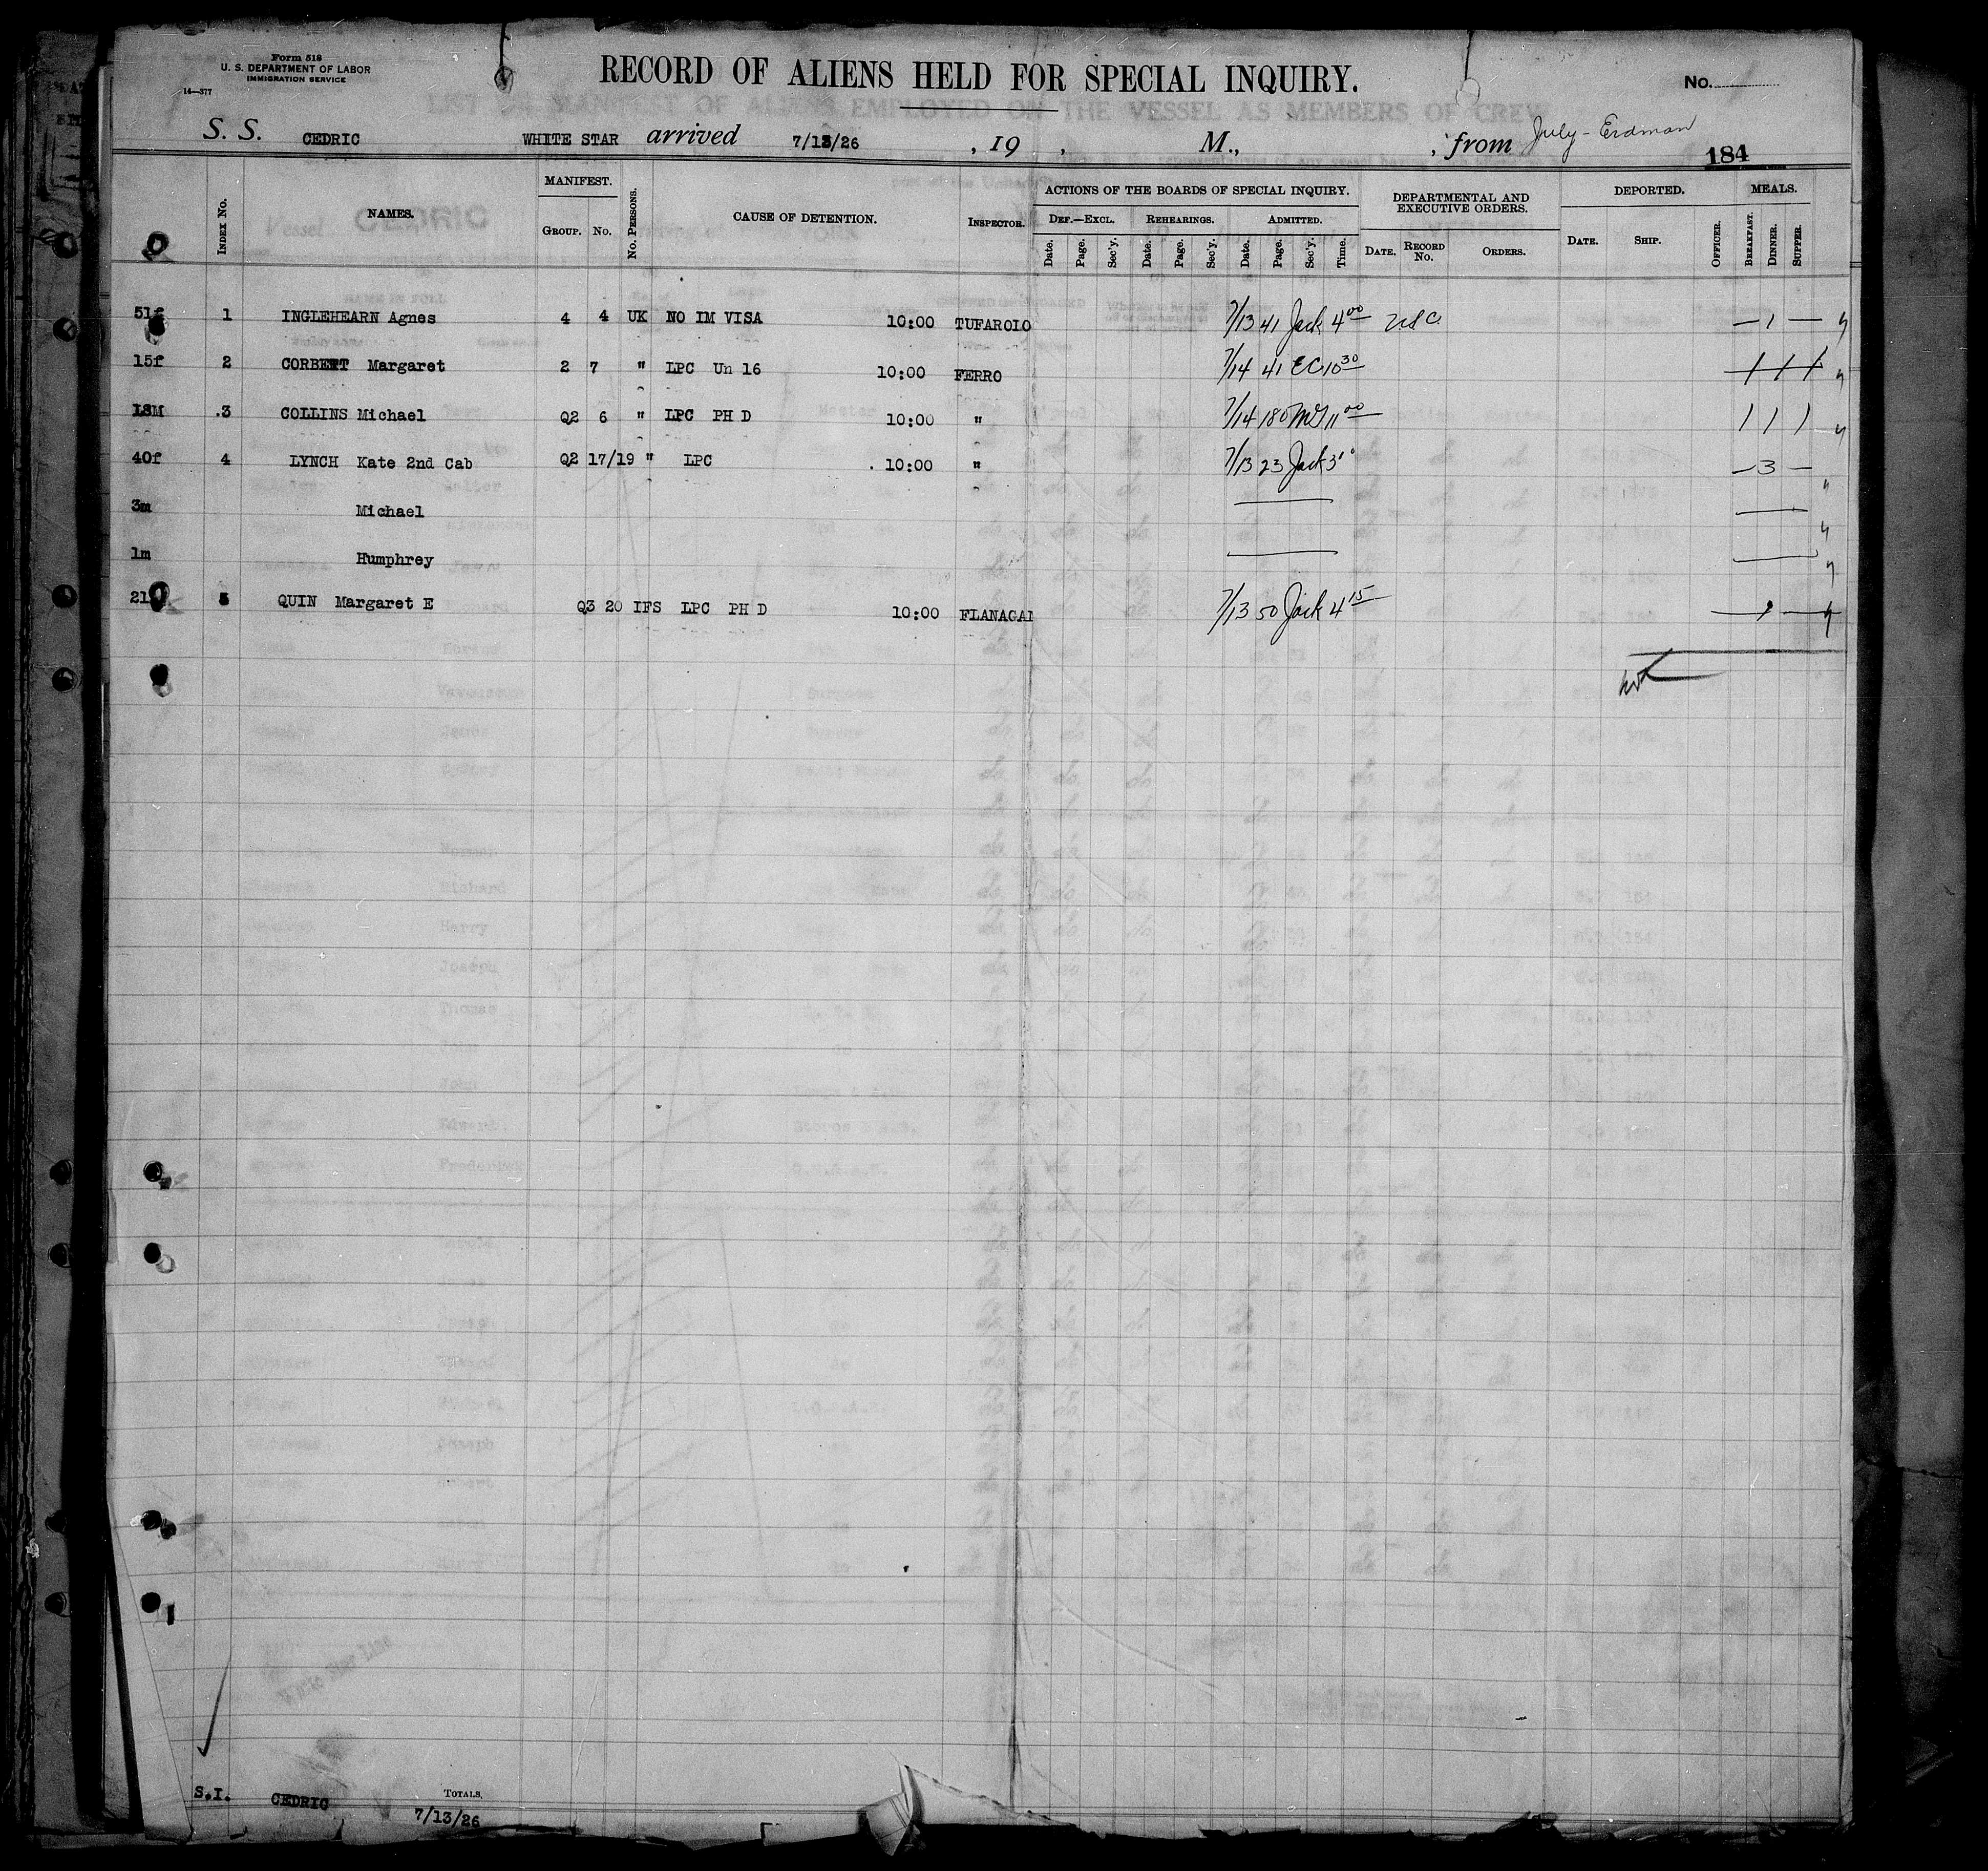 Form 518
U. S. DEPARTMENT OF LABOR
IMMIGRATION SERVICE
14—377
RECORD OF ALIENS HELD FOR SPECIAL INQUIRY.
No.
S. S. CEDRIC WHITE STAR arrived 7/13/26 , 19 , M., , from July - Erdman
184
INDEX No. NAMES. MANIFEST. GROUP. No. No. PERSONS. CAUSE OF DETENTION. INSPECTOR. ACTIONS OF THE BOARDS OF SPECIAL INQUIRY. DEF.—EXCL. Date. Page. Sec'y. REHEARINGS. Date. Page. Sec'y. ADMITTED. Date. Page. Sec'y. Time. DEPARTMENTAL AND EXECUTIVE ORDERS. DATE. RECORD No. ORDERS. DEPORTED. DATE. SHIP. OFFICER. MEALS. BREAKFAST. DINNER. SUPPER.
51f 1 INGLEHEARN Agnes 4 4 UK NO IM VISA 10:00 TUFAROIO 7/13 41 Jack 4 00 USC — 1 —
15f 2 CORBETT Margaret 2 7 " LPC Un 16 10:00 FERRO 7/14 41 EC 10 30 / / /
18M 3 COLLINS Michael Q2 6 " LPC PH D 10:00 " 7/14 180 11 00 / / /
40f 4 LYNCH Kate 2nd Cab Q2 17/19 " LPC 10:00 " 7/13 23 Jack 3 — 3 —
3m Michael
1m Humphrey
21 5 QUIN Margaret E Q3 20 IFS LPC PH D 10:00 FLANAGAN 7/13 50 Jack 4 15 — 1 —
S.I. CEDRIC TOTALS.
7/13/26